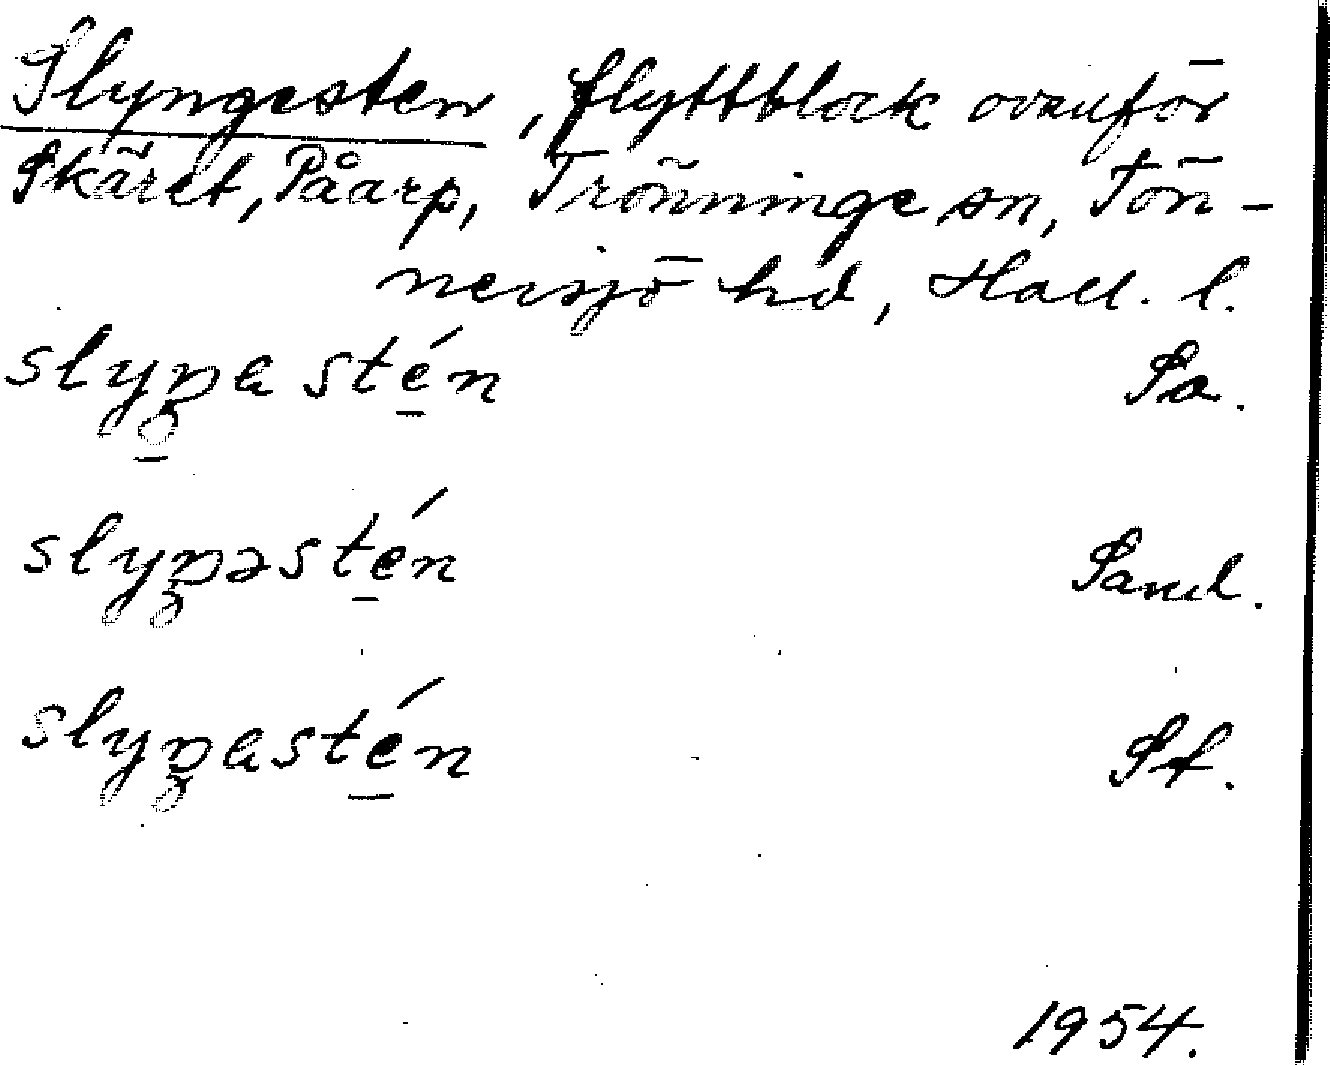 Slyngesten, flyttblock ovanför
Skäret, Påarp, Trönninge sn, Tön-
nersjö hd, Hall. l.
slyŋɐ stén Sa.
slyŋəstén Sand.
slyŋɐstén St.
1954.